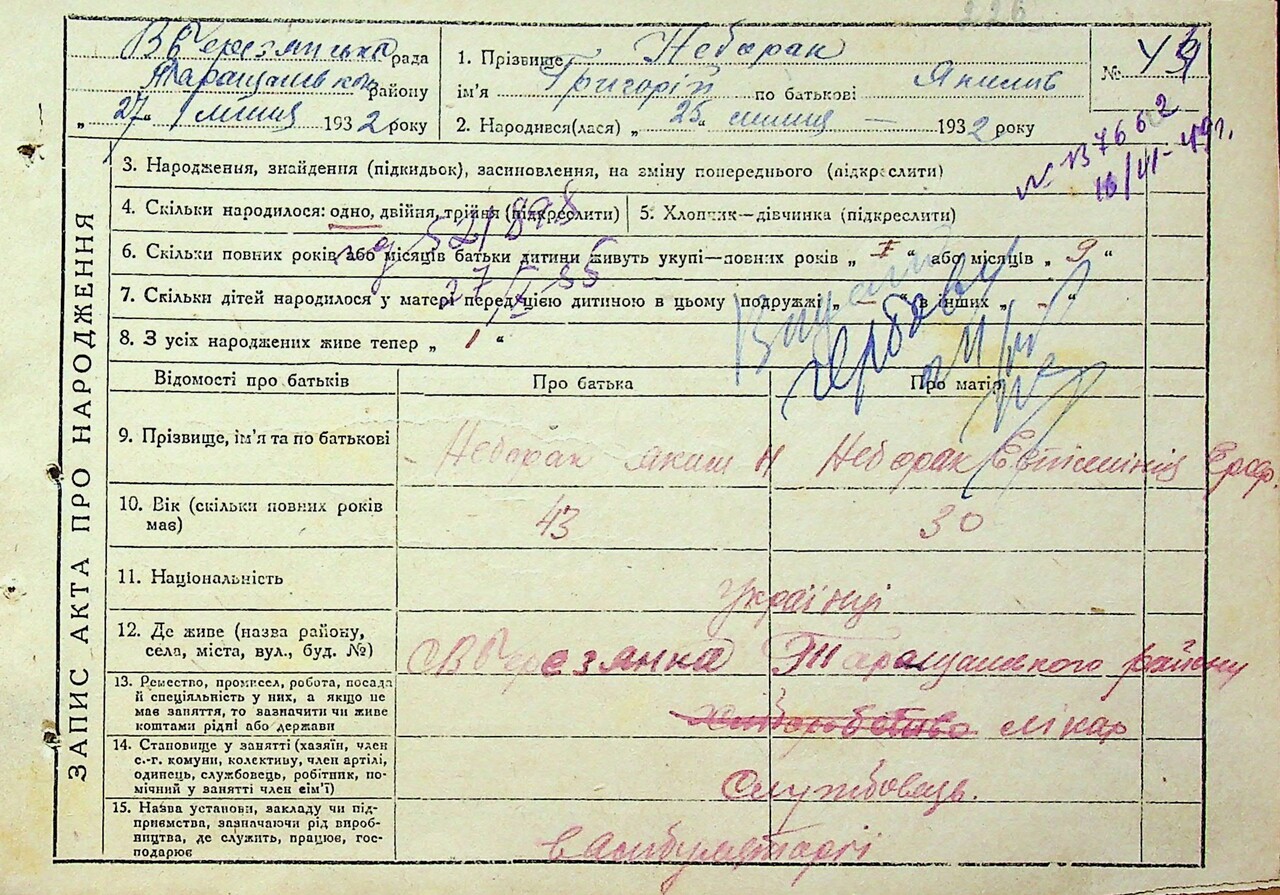 226
В Березянська рада
Таращанськ району
„27“ липня 1932 року
1. Прізвище Неборак
ім'я Григорій по батькові Якимів
2. Народився(лася) „25“ липня 1932 року
№ 49
16/VI-49 г.
3. Народження, знайдення (підкидьок), засиновлення, на зміну попереднього (підкреслити)
4. Скільки народилося: одно, двійня, трійня (підкреслити)
5. Хлопчик—дівчинка (підкреслити)
6. Скільки повних років або місяців батьки дитини живуть укупі—повних років „ “ або місяців „ 9 “
7. Скільки дітей народилося у матері перед цією дитиною в цьому подружжі „ - “ в інших „ - “
8. З усіх народжених живе тепер „ 1 “
ЗАПИС АКТА ПРО НАРОДЖЕННЯ
Відомості про батьків
Про батька
Про матір
9. Прізвище, ім'я та по батькові
Неборак Яким Н
Неборак
10. Вік (скільки повних років має)
43
30
11. Національність
Українці
12. Де живе (назва району,
села, міста, вул., буд. №)
В Березянка Таращанського району
13. Ремество, промисел, робота, посада
й спеціяльність у них, а якщо не
має заняття, то зазначити чи живе
коштами рідні або держави
лікар
14. Становище у занятті (хазяїн, член
с.-г. комуни, колективу, член артілі,
одинець, службовець, робітник, по-
мічний у занятті член сім'ї)
Службовець.
15. Назва установи, закладу чи під-
приємства, зазначаючи рід вироб-
ництва, де служить, працює, гос-
подарює
в амбулаторії